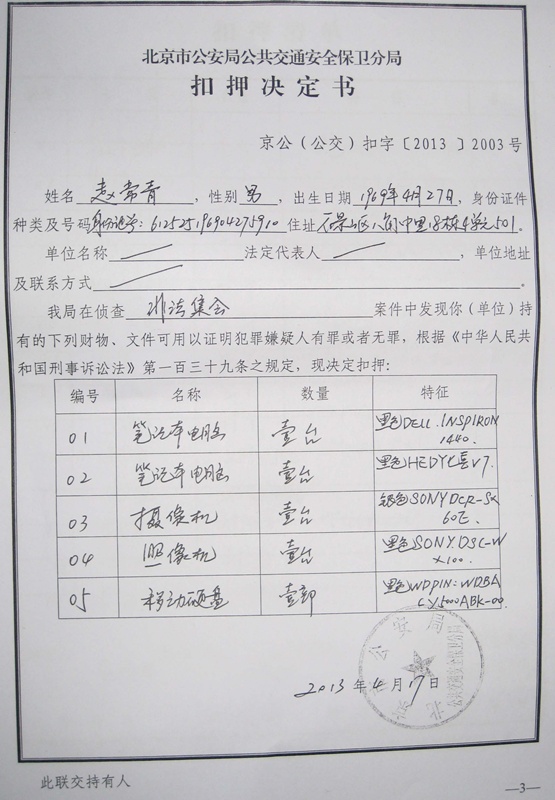 北京市公安局公共交通安全保卫分局
扣押决定书
京公（公交）扣字〔2013 〕2003号
姓名 赵常青 ，性别 男 ，出生日期 1969年4月27日，身份证件
种类及号码身份证号：612525196904275910 住址 石景山区八角中里18栋4单元501。
单位名称 法定代表人 ，单位地址
及联系方式 。
我局在侦查 非法集会 案件中发现你（单位）持
有的下列财物、文件可用以证明犯罪嫌疑人有罪或者无罪，根据《中华人民共
和国刑事诉讼法》第一百三十九条之规定，现决定扣押：
编号 名称 数量 特征
01 笔记本电脑 壹台 黑色DELL.INSPIRON 1440.
02 笔记本电脑 壹台 黑色HEDY七喜V7.
03 摄像机 壹台 银色SONYDCR-SX 60E.
04 照像机 壹台 黑色SONY.DSC-W X100.
05 移动硬盘 壹部 黑色WDPIN:WDBA CX5000ABK-00.
北京市公安局
公共交通安全保卫分局
2013 年 4 月 17 日
此联交持有人
—3—